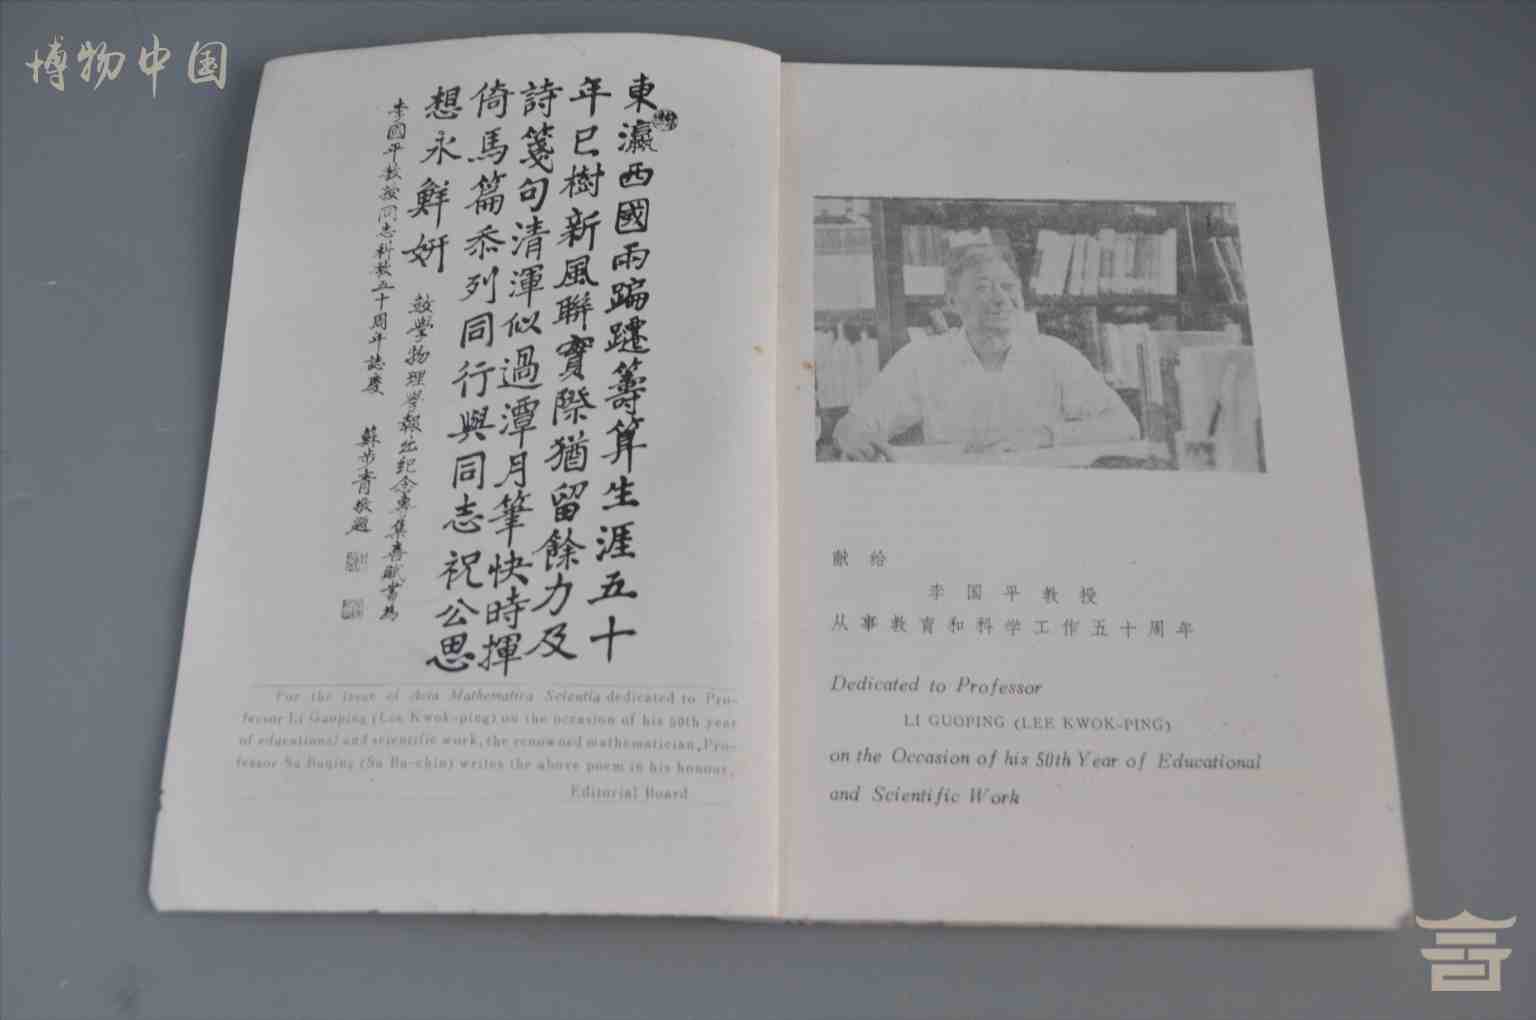 博物中国
東瀛西國兩蹁躚籌算生涯五十
年已樹新風聯實際猶留餘力及
詩箋句清渾似過潭月筆快時揮
倚馬篇忝列同行與同志祝公思
想永鮮妍 数學物理学報出纪念專集喜賦書為
李國平教授同志科教五十周年誌慶 蘇步青敬題
For the issue of Acta Mathematica Scientia dedicated to Pro-
fessor Li Guoping (Lee Kwok-ping) on the occasion of his 50th year
of educational and scientific work, the renowned mathematician, Pro-
fessor Su Buqing (Su Bu-chin) writes the above poem in his honour.
Editorial Board
献给
李国平教授
从事教育和科学工作五十周年
Dedicated to Professor
LI GUOPING (LEE KWOK-PING)
on the Occasion of his 50th Year of Educational
and Scientific Work